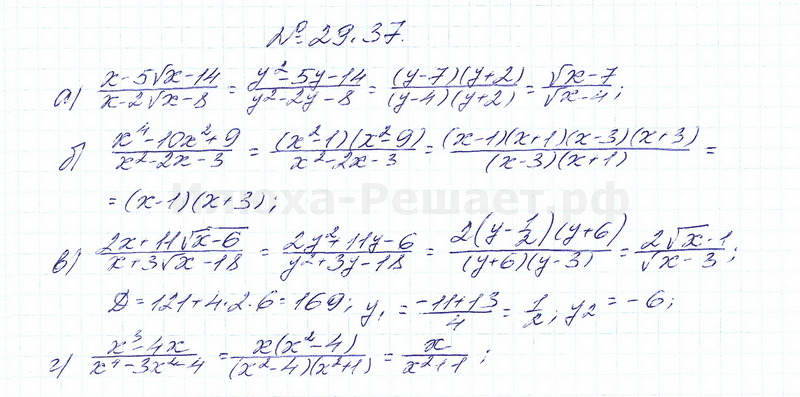 № 29.37.
а) (x-5√x-14)/(x-2√x-8) = (y²-5y-14)/(y²-2y-8) = ((y-7)(y+2))/((y-4)(y+2)) = (√x-7)/(√x-4);
б) (x⁴-10x²+9)/(x²-2x-3) = ((x²-1)(x²-9))/(x²-2x-3) = ((x-1)(x+1)(x-3)(x+3))/((x-3)(x+1)) =
= (x-1)(x+3);
Илюха-Решает.рф
в) (2x+11√x-6)/(x+3√x-18) = (2y²+11y-6)/(y²+3y-18) = (2(y-1/2)(y+6))/((y+6)(y-3)) = (2√x-1)/(√x-3);
D = 121+4·2·6 = 169; y₁ = (-11+13)/4 = 1/2; y₂ = -6;
г) (x³-4x)/(x⁴-3x²-4) = (x(x²-4))/((x²-4)(x²+1)) = x/(x²+1);